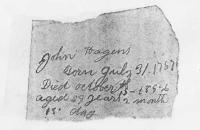 John Hagens
Born July 31. 1767
Died october 15 - 1856
aged 89 years 2 month
15 day